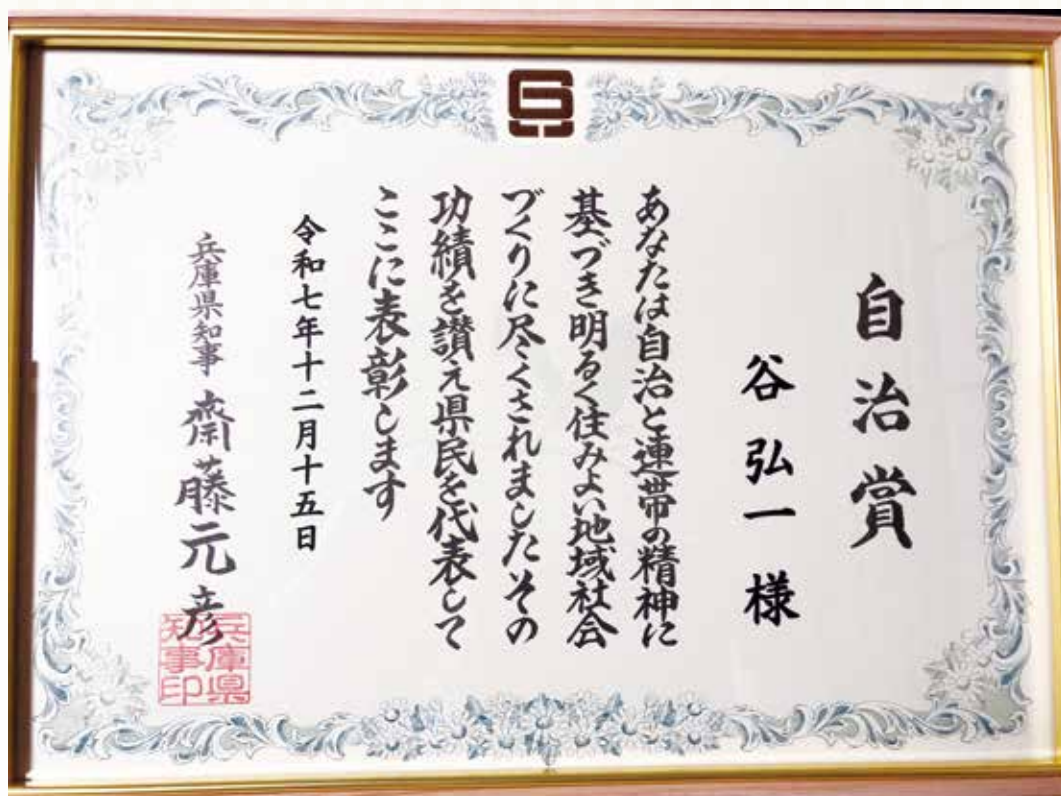 自治賞
谷弘一様
あなたは自治と連帯の精神に
基づき明るく住みよい地域社会
づくりに尽くされましたその
功績を讃え県民を代表して
ここに表彰します
令和七年十二月十五日
兵庫県知事 齋藤元彦
兵庫県
知事印